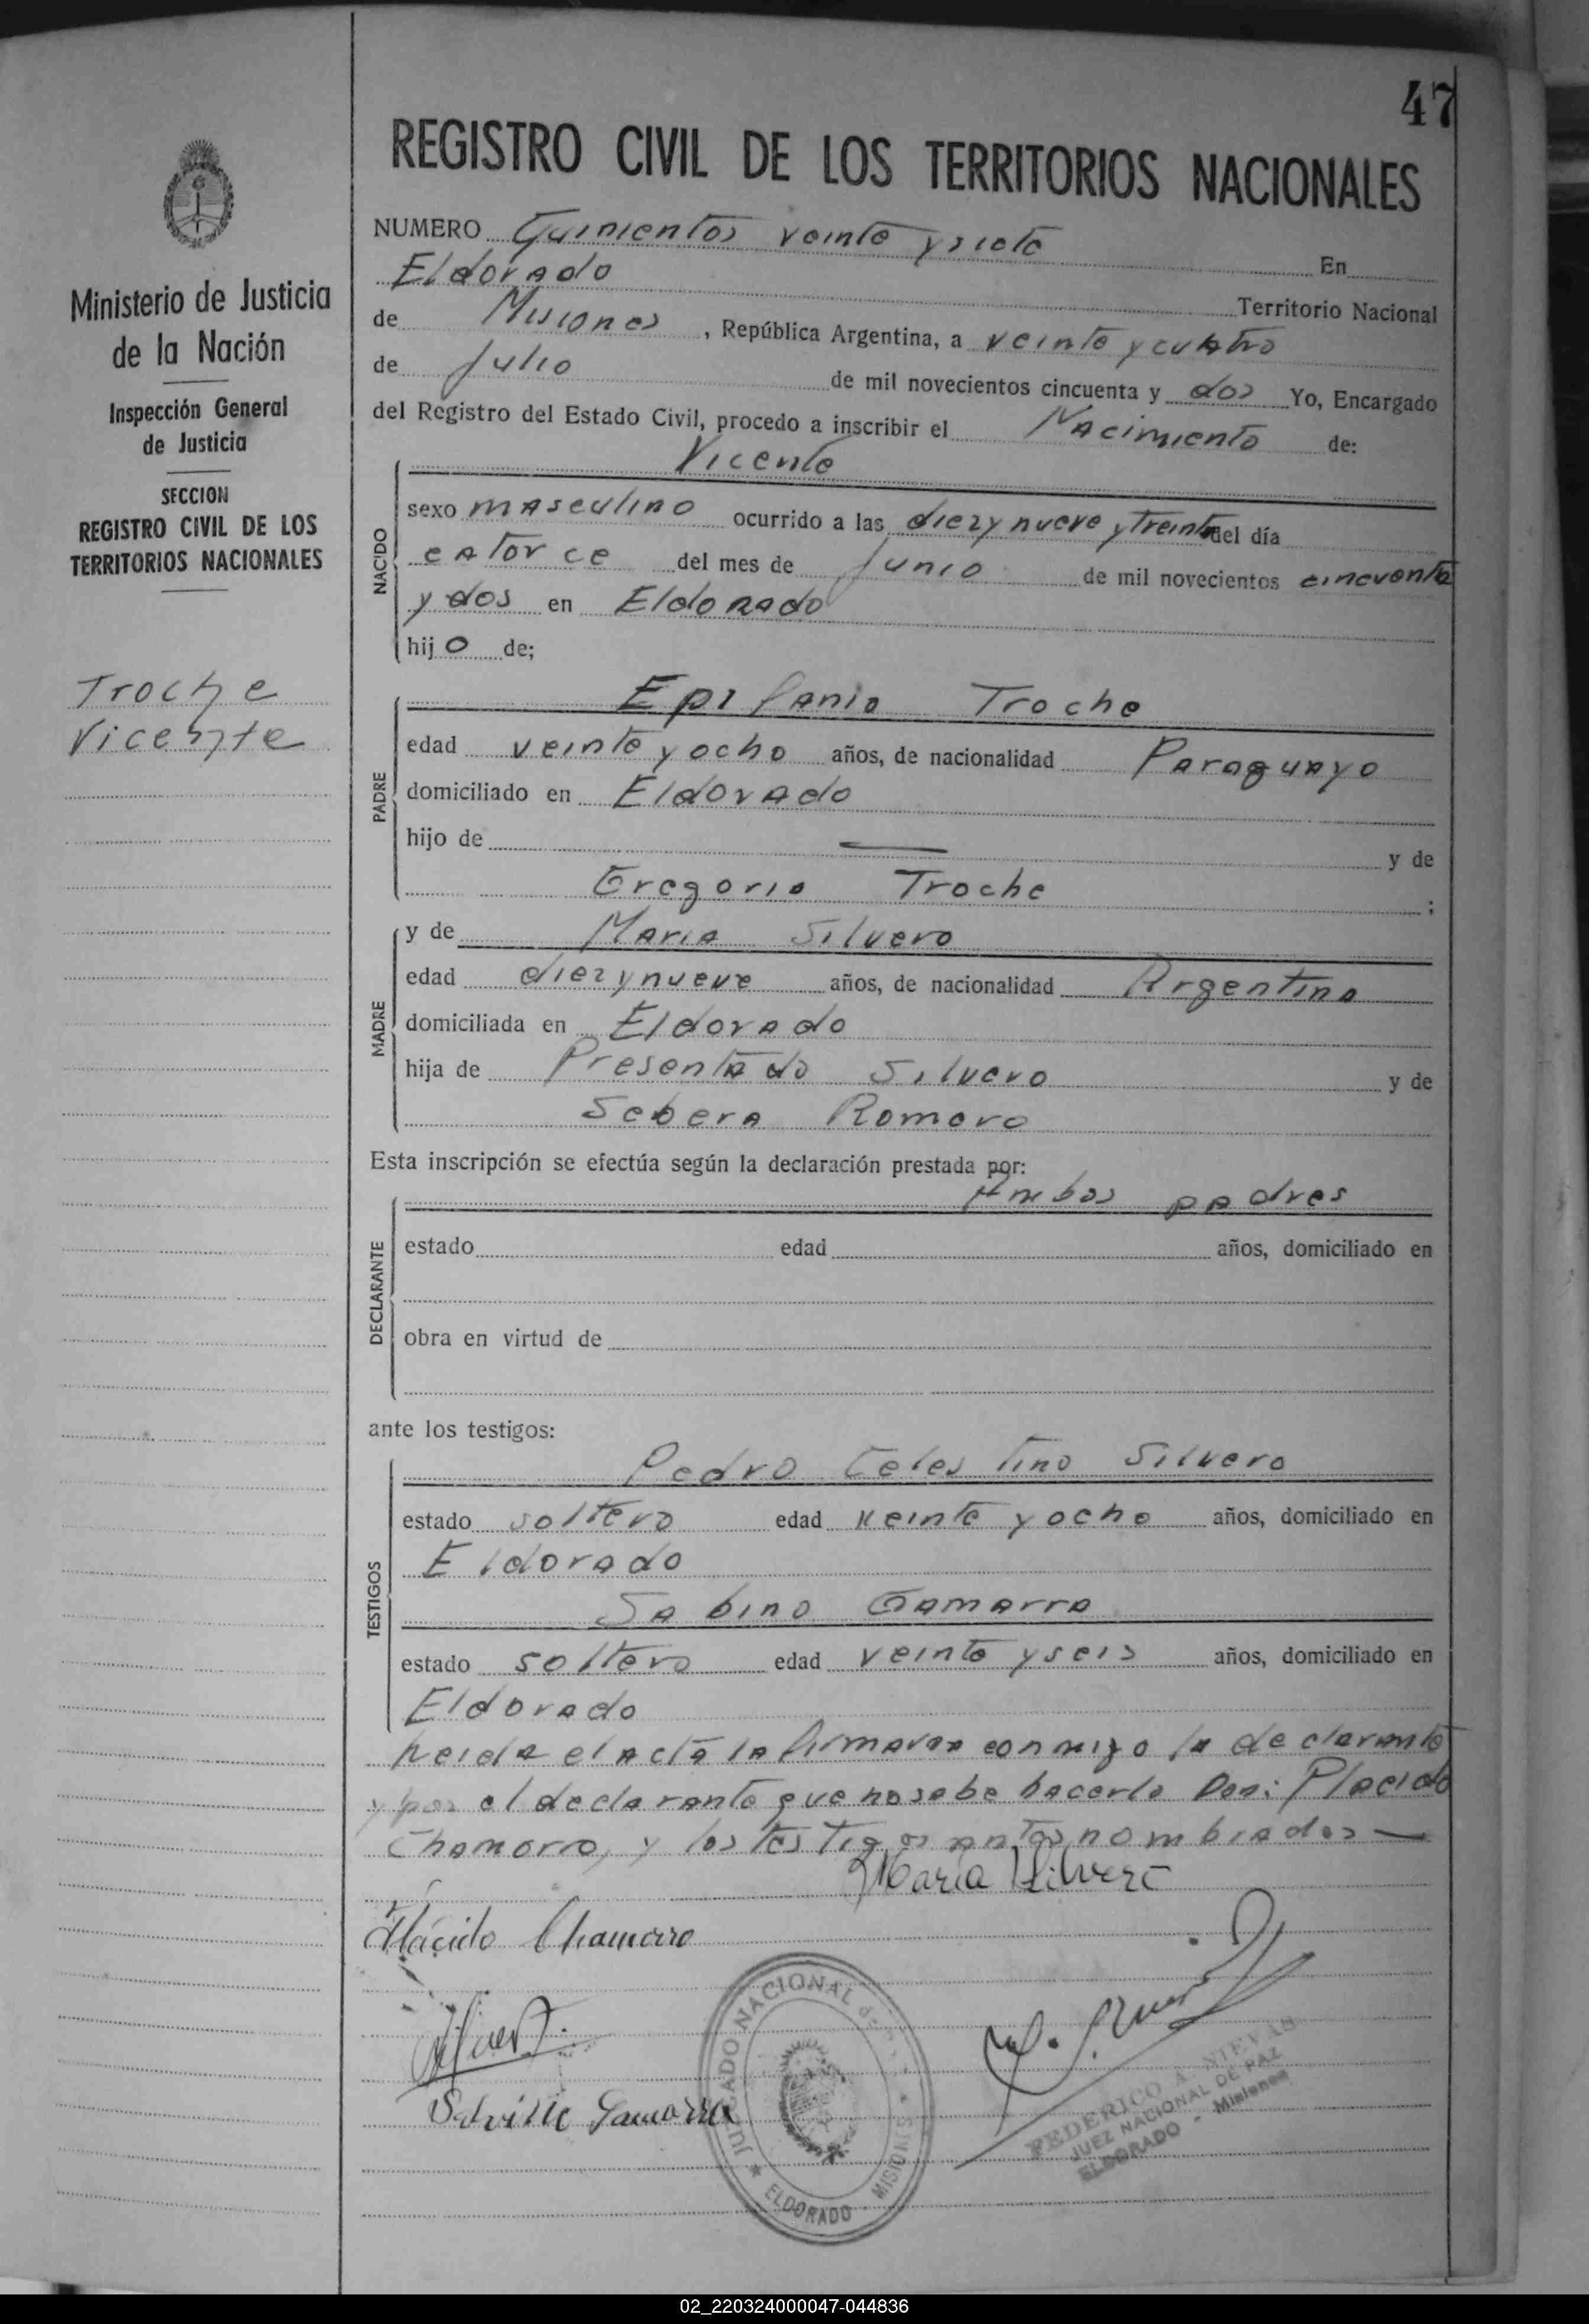 47
REGISTRO CIVIL DE LOS TERRITORIOS NACIONALES
Ministerio de Justicia
de la Nación
Inspección General
de Justicia
SECCION
REGISTRO CIVIL DE LOS
TERRITORIOS NACIONALES
Troche
Vicente
NUMERO Quinientos veinte y siete En
Eldorado Territorio Nacional
de Misiones, República Argentina, a veinte y cuatro
de Julio de mil novecientos cincuenta y dos Yo, Encargado
del Registro del Estado Civil, procedo a inscribir el Nacimiento de:
NACIDO
Vicente
sexo masculino ocurrido a las diez y nueve y treinta del día
catorce del mes de Junio de mil novecientos cincuenta
y dos en Eldorado
hijo de;
PADRE
Epifanio Troche
edad veinte y ocho años, de nacionalidad Paraguayo
domiciliado en Eldorado
hijo de — y de
Gregoria Troche ;
MADRE
y de Maria Silvero
edad diez y nueve años, de nacionalidad Argentina
domiciliada en Eldorado
hija de Presentado Silvero y de
Sebera Romero
Esta inscripción se efectúa según la declaración prestada por:
DECLARANTE
Ambos padres
estado edad años, domiciliado en
obra en virtud de
ante los testigos:
TESTIGOS
Pedro Celestino Silvero
estado soltero edad veinte y ocho años, domiciliado en
Eldorado
Sabino Gamarra
estado soltero edad veinte y seis años, domiciliado en
Eldorado
Leida el acta la firmaron conmigo la declarante
y por el declarante que no sabe hacerlo Don: Placido
Chamorro, y los testigos antes nombrados —
Maria Silvero
Plácido Chamorro
Gamarra
JUZGADO NACIONAL de
ELDORADO MISIONES
FEDERICO A. NIEVAS
JUEZ NACIONAL DE PAZ
ELDORADO - Misiones
02_220324000047-044836